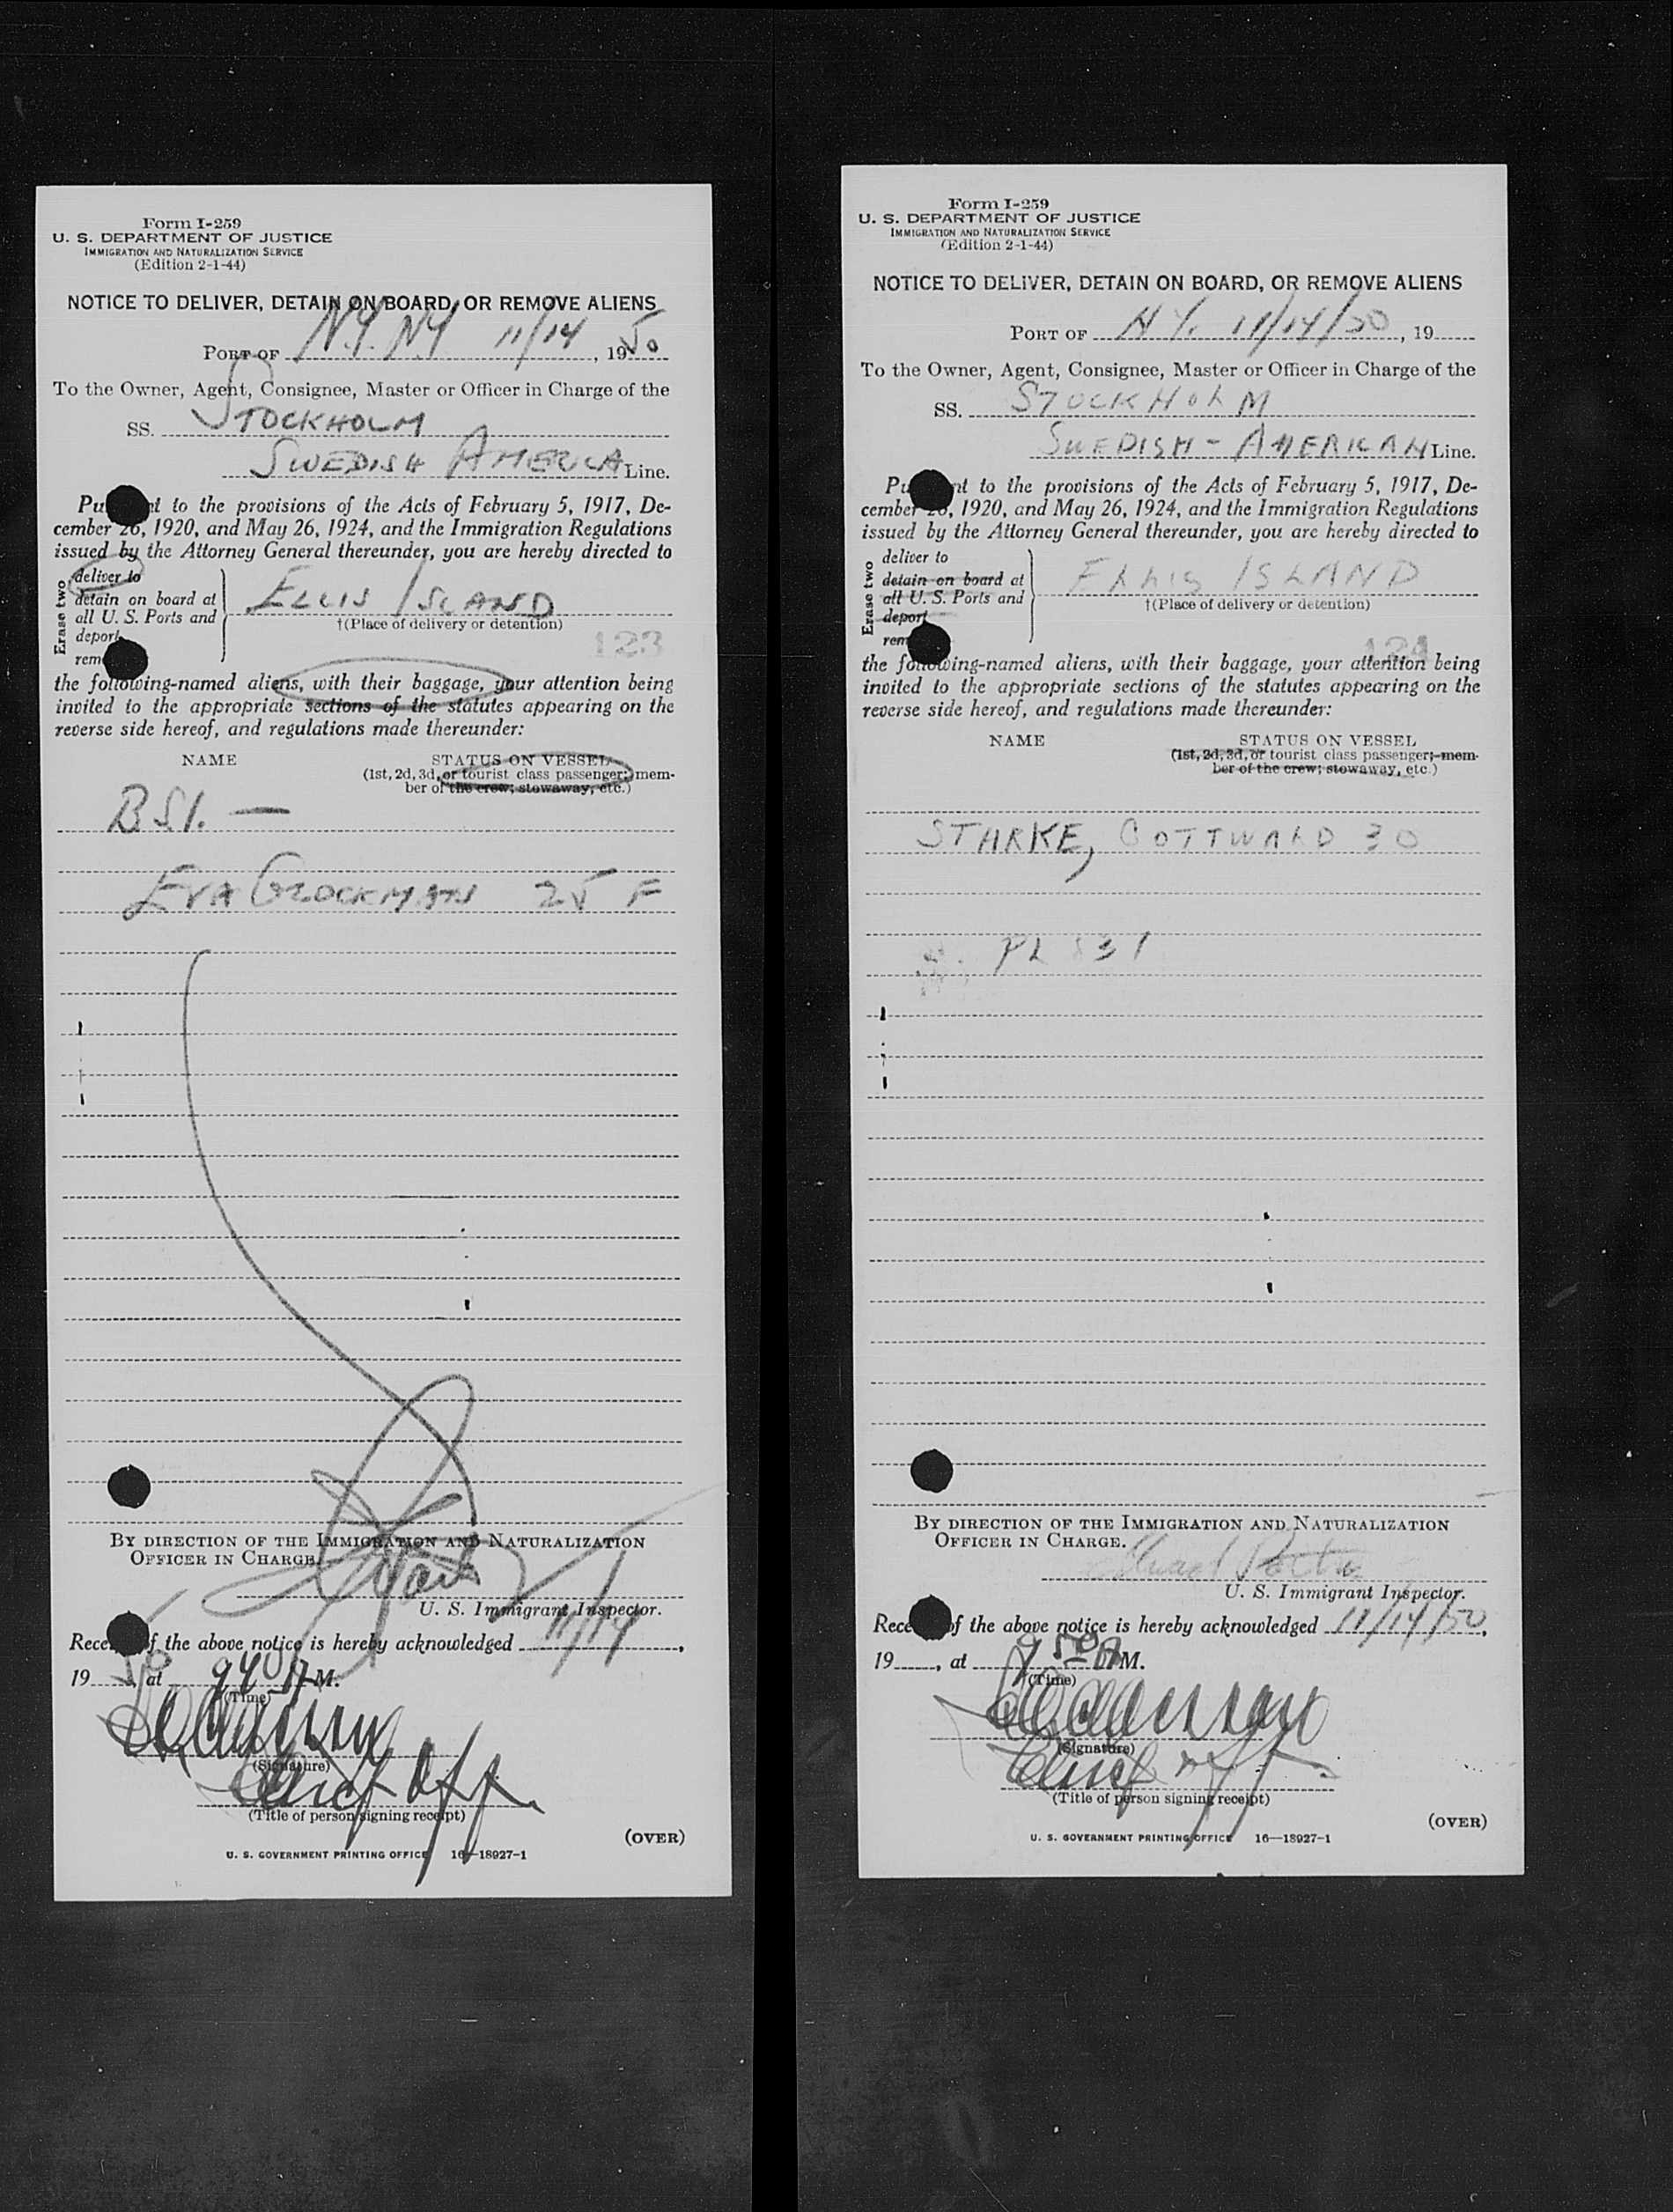 Form I-259
U. S. DEPARTMENT OF JUSTICE
IMMIGRATION AND NATURALIZATION SERVICE
(Edition 2-1-44)
NOTICE TO DELIVER, DETAIN ON BOARD, OR REMOVE ALIENS
PORT OF N.Y. N.Y 11/14, 1950
To the Owner, Agent, Consignee, Master or Officer in Charge of the
SS. STOCKHOLM
SWEDISH AMERICA Line.
Pu nt to the provisions of the Acts of February 5, 1917, De-
cember 26, 1920, and May 26, 1924, and the Immigration Regulations
issued by the Attorney General thereunder, you are hereby directed to
Erase two
deliver to
detain on board at
all U. S. Ports and
deport
rem
ELLIS ISLAND
†(Place of delivery or detention)
123
the following-named aliens, with their baggage, your attention being
invited to the appropriate sections of the statutes appearing on the
reverse side hereof, and regulations made thereunder:
NAME STATUS ON VESSEL
(1st, 2d, 3d, or tourist class passenger; mem-
ber of the crew; stowaway, etc.)
BSI. —
EVA GLOCKMAN 25 F
BY DIRECTION OF THE IMMIGRATION AND NATURALIZATION
OFFICER IN CHARGE.
U. S. Immigrant Inspector.
Rece f the above notice is hereby acknowledged 11/14,
1950 at 940 A M.
(Time)
(Signature)
Chief Off.
(Title of person signing receipt)
(OVER)
U. S. GOVERNMENT PRINTING OFFICE 16—18927-1
Form I-259
U. S. DEPARTMENT OF JUSTICE
IMMIGRATION AND NATURALIZATION SERVICE
(Edition 2-1-44)
NOTICE TO DELIVER, DETAIN ON BOARD, OR REMOVE ALIENS
PORT OF N Y. 11/14/50, 19
To the Owner, Agent, Consignee, Master or Officer in Charge of the
SS. STOCKHOLM
SWEDISH - AMERICAN Line.
Pu nt to the provisions of the Acts of February 5, 1917, De-
cember 26, 1920, and May 26, 1924, and the Immigration Regulations
issued by the Attorney General thereunder, you are hereby directed to
Erase two
deliver to
detain on board at
all U. S. Ports and
deport
rem
ELLIS ISLAND
†(Place of delivery or detention)
124
the following-named aliens, with their baggage, your attention being
invited to the appropriate sections of the statutes appearing on the
reverse side hereof, and regulations made thereunder:
NAME STATUS ON VESSEL
(1st, 2d, 3d, or tourist class passenger; mem-
ber of the crew; stowaway, etc.)
STARKE, GOTTWALD 30
PL 831
BY DIRECTION OF THE IMMIGRATION AND NATURALIZATION
OFFICER IN CHARGE.
U. S. Immigrant Inspector.
Rece of the above notice is hereby acknowledged 11/14/50,
19, at 9 50 A M.
(Time)
(Signature)
Chief Off.
(Title of person signing receipt)
(OVER)
U. S. GOVERNMENT PRINTING OFFICE 16—18927-1